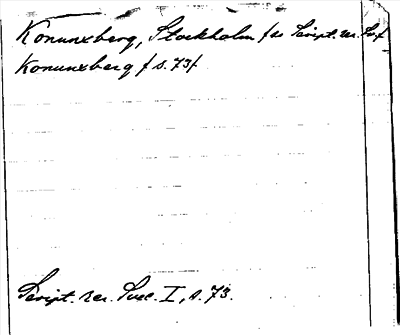 Konunxberg, Stockholm fr Script. rer. Sv.
Konunxberg f s. 73f.
Script. rer. Suec. I, s. 73.